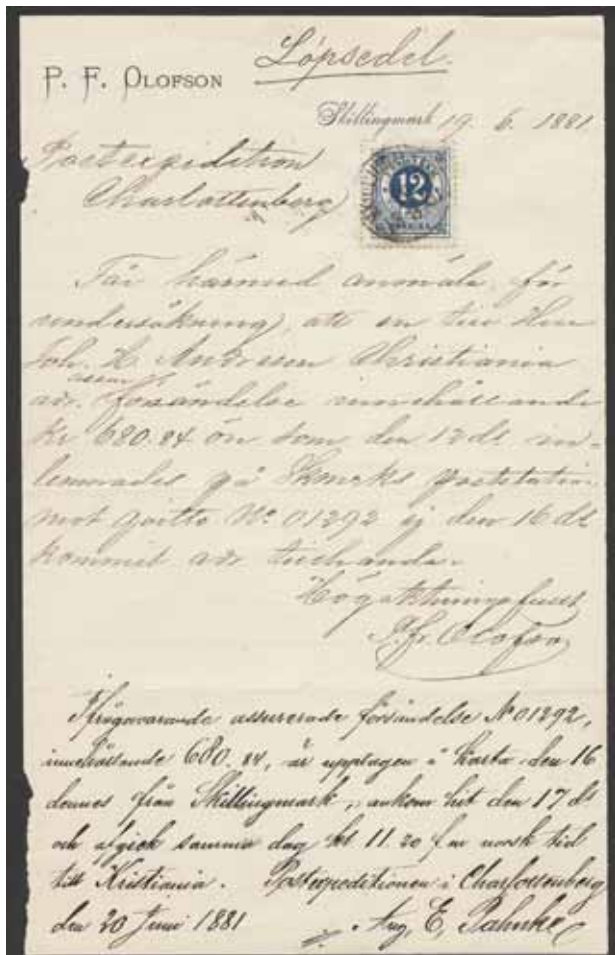 Löpsedel.
P. F. Olofson
Skillingmark 19. 6. 1881
Postexpedition
Charlottenberg
12
Får härmed anmäla för
undersökning, att en till Herr
Joh. H. Andresen Christiania
assur.
adr. försändelse innehållande
Kr 680.84 öre som den 12 ds in-
lemnades på Skmrks poststation
mot qvitto No 01292 ej den 16 ds
kommit adr. tillhanda.
Högaktningsfullt
P. Fr. Olofson
Ifrågavarande assurerade försändelse No 01292,
innehållande 680.84, är upptagen i karta den 16
dennes från Skillingmark, ankom hit den 17 ds
och afgick samma dag kl 11.20 fm norsk tid
till Kristiania. Postexpeditionen i Charlottenberg
den 20 Juni 1881 Aug. E. Pahnke